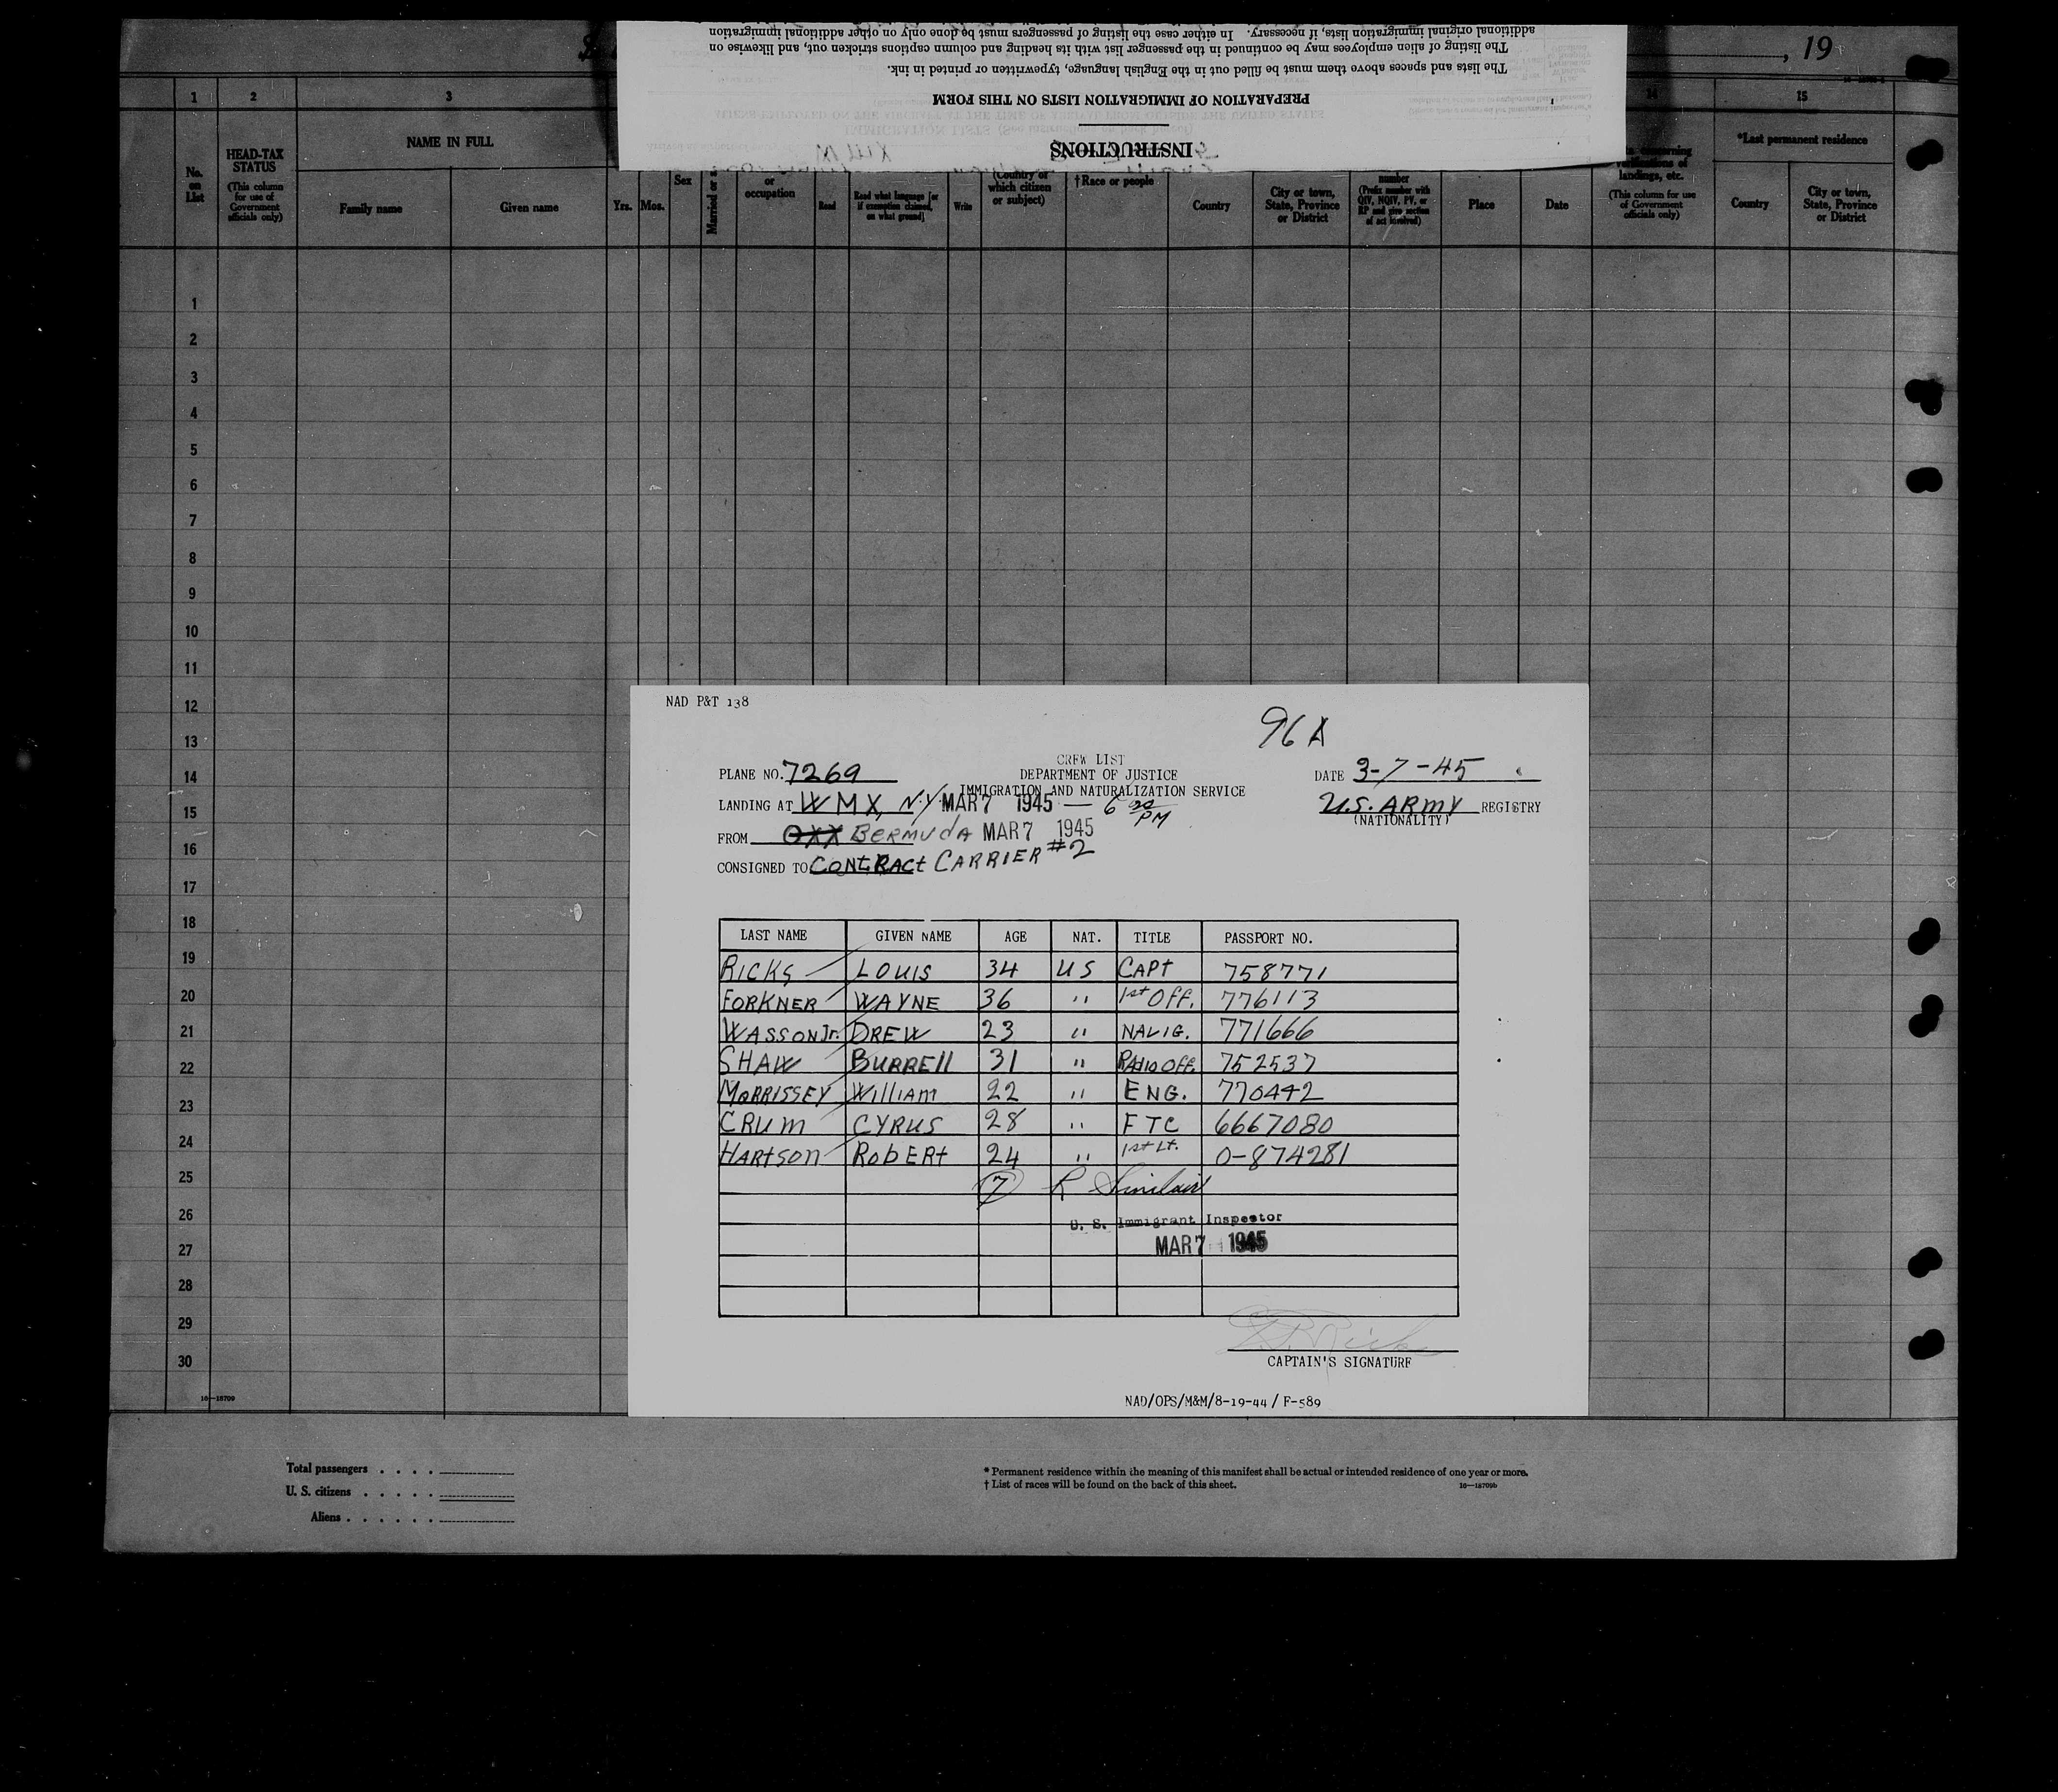 additional original immigration lists, if necessary. In either case the listing of passengers must be done only on other additional immigration
The listing of alien employees may be continued in the passenger list with its heading and column captions stricken out, and likewise on
The lists and spaces above them must be filled out in the English language, typewritten or printed in ink.
PREPARATION OF IMMIGRATION LISTS ON THIS FORM
INSTRUCTIONS
, 19
1 2 3 14 15
No. on List
HEAD-TAX STATUS
(This column for use of Government officials only)
NAME IN FULL
Family name
Given name
Yrs. Mos.
Sex
Married or
or occupation
Read
Read what language [or if exemption claimed, on what ground]
Write
(Country of which citizen or subject)
†Race or people
Country
City or town, State, Province or District
number
(Prefix number with QIV, NQIV, PV, or RP and give section of act involved)
Place
Date
concerning verifications of landings, etc.
(This column for use of Government officials only)
*Last permanent residence
Country
City or town, State, Province or District
1
2
3
4
5
6
7
8
9
10
11
12
13
14
15
16
17
18
19
20
21
22
23
24
25
26
27
28
29
30
16—18709
NAD P&T 138
96A
CREW LIST
PLANE NO. 7269 DEPARTMENT OF JUSTICE DATE 3-7-45
IMMIGRATION AND NATURALIZATION SERVICE
LANDING AT WMX, N.Y. MAR 7 1945 — 6 PM U.S. ARMY REGISTRY
(NATIONALITY)
FROM OXX BERMUDA MAR 7 1945
CONSIGNED TO CONTRACT CARRIER #2
LAST NAME GIVEN NAME AGE NAT. TITLE PASSPORT NO.
RICKS LOUIS 34 US CAPT 758771
FORKNER WAYNE 36 " 1st Off. 776113
WASSON Jr. DREW 23 " NAVIG. 771666
SHAW BURRELL 31 " RADIO Off. 752537
MORRISSEY William 22 " ENG. 770442
CRUM CYRUS 28 " FTC 6667080
HARTSON ROBERT 24 " 1st Lt. O-874281
7 R Sinclair
U. S. Immigrant Inspector
MAR 7 1945
CAPTAIN'S SIGNATURE
NAD/OPS/M&M/8-19-44 / F-589
Total passengers . . . .
U. S. citizens . . . . .
Aliens . . . . . .
* Permanent residence within the meaning of this manifest shall be actual or intended residence of one year or more.
† List of races will be found on the back of this sheet.
16—18709b